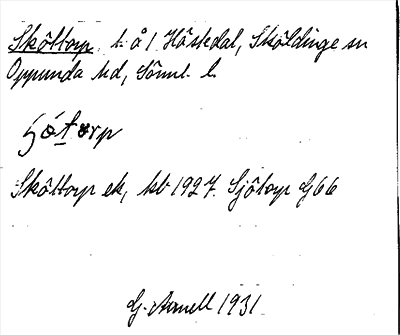 Sköttorp t. å 1 Håstedal, Sköldinge sn
Oppunda hd, Sörml. l.
Sköttorp ek, kb 1927. Sjötorp G 66
G. Arnell 1931